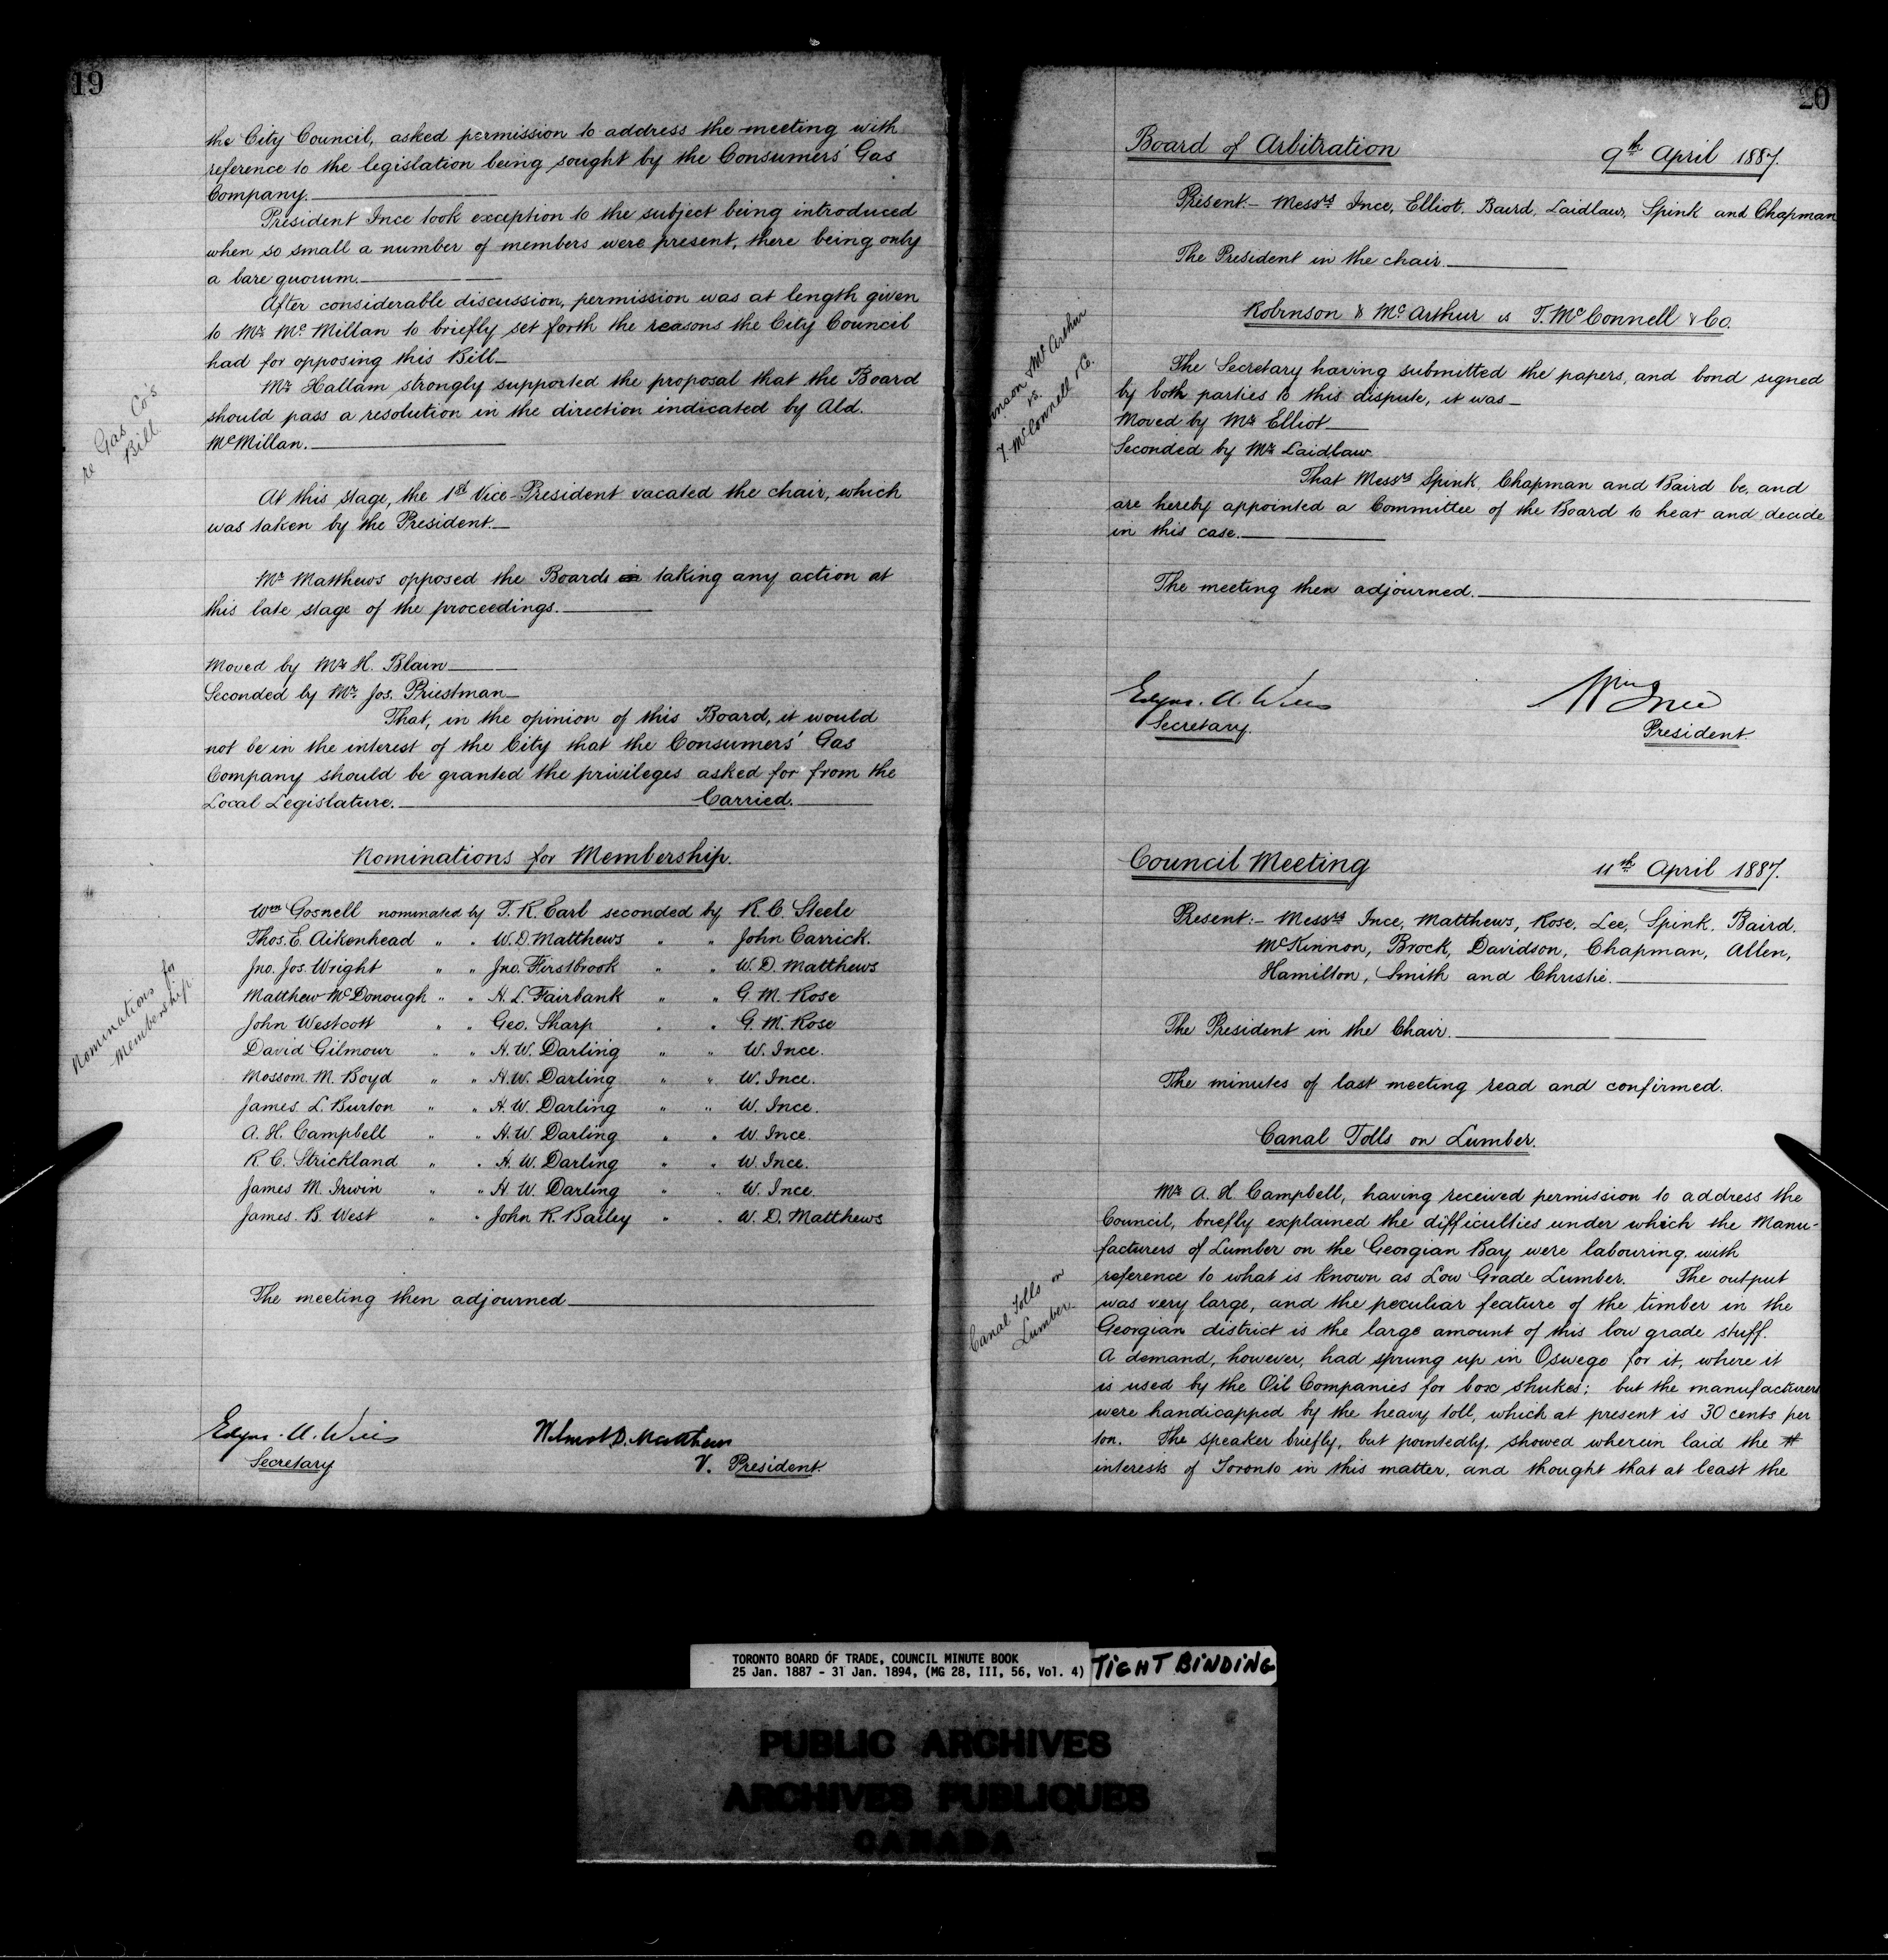 19
the City Council, asked permission to address the meeting with
reference to the legislation being sought by the Consumers' Gas
Company.
President Ince took exception to the subject being introduced
when so small a number of members were present, there being only
a bare quorum.
After considerable discussion, permission was at length given
to Mr McMillan to briefly set forth the reasons the City Council
had for opposing this Bill
Mr Hallam strongly supported the proposal that the Board
should pass a resolution in the direction indicated by Ald.
McMillan.
re Gas Co's
Bill.
At this stage, the 1st Vice-President vacated the chair, which
was taken by the President
Mr Matthews opposed the Boards taking any action at
this late stage of the proceedings.
Moved by Mr H. Blain
Seconded by Mr. Jos. Priestman
That, in the opinion of this Board, it would
not be in the interest of the City that the Consumers' Gas
Company should be granted the privileges asked for from the
Local Legislature. Carried.
Nominations for Membership.
Nominations for
Membership
Wm Gosnell nominated by T. R. Earl seconded by R. C. Steele
Thos. E. Aikenhead " " W. D. Matthews " " John Carrick.
Jno. Jos. Wright " " Jno. Firstbrook " " W. D. Matthews
Matthew McDonough " " H. L. Fairbank " " G. M. Rose
John Westcott " " Geo. Sharp " " G. M. Rose
David Gilmour " " H. W. Darling " " W. Ince.
Mossom. M. Boyd " " H. W. Darling " " W. Ince.
James L. Burton " " H. W. Darling " " W. Ince.
A. H. Campbell " " H. W. Darling " " W. Ince.
R. C. Strickland " " H. W. Darling " " W. Ince.
James M. Irwin " " H. W. Darling " " W. Ince.
James. B. West " " John R. Bailey " " W. D. Matthews
The meeting then adjourned
Edgar. A. Wills
Secretary
Wilmot D. Matthews
V. President.
20
Board of Arbitration 9th April 1887.
Present:- Messrs Ince, Elliot, Baird, Laidlaw, Spink and Chapman
The President in the chair.
Robinson & McArthur vs T. McConnell & Co.
inson & McArthur
vs.
T. McConnell & Co.
The Secretary having submitted the papers, and bond signed
by both parties to this dispute, it was
Moved by Mr Elliot
Seconded by Mr Laidlaw.
That Messrs Spink, Chapman and Baird be, and
are hereby appointed a Committee of the Board to hear and decide
in this case.
The meeting then adjourned.
Edgar. A. Wills
Secretary.
Wm Ince
President.
Council Meeting 11th April 1887.
Present:- Messrs Ince, Matthews, Rose, Lee, Spink, Baird,
McKinnon, Brock, Davidson, Chapman, Allen,
Hamilton, Smith and Christie.
The President in the Chair.
The minutes of last meeting read and confirmed.
Canal Tolls on Lumber.
Canal Tolls on
Lumber.
Mr A. H. Campbell, having received permission to address the
Council, briefly explained the difficulties under which the Manu-
facturers of Lumber on the Georgian Bay were labouring, with
reference to what is known as Low Grade Lumber. The output
was very large, and the peculiar feature of the timber in the
Georgian district is the large amount of this low grade stuff.
A demand, however, had sprung up in Oswego for it, where it
is used by the Oil Companies for box shukes; but the manufacturers
were handicapped by the heavy toll, which at present is 30 cents per
ton. The speaker briefly, but pointedly, showed wherein laid the
interests of Toronto in this matter, and thought that at least the
TORONTO BOARD OF TRADE, COUNCIL MINUTE BOOK
25 Jan. 1887 - 31 Jan. 1894, (MG 28, III, 56, Vol. 4)
TIGHT BINDING
PUBLIC ARCHIVES
ARCHIVES PUBLIQUES
CANADA